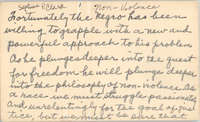 Septima P. Clark Non-Violence
Fortunately the Negro has been
willing to grapple with a new and
powerful approach to his problem
As he plunges deeper into the quest
for freedom he will plunge deeper
into the philosophy of non-violence. As
a race we must struggle passionately
and unrelentingly for the goal of jus
tice, but we must be sure that